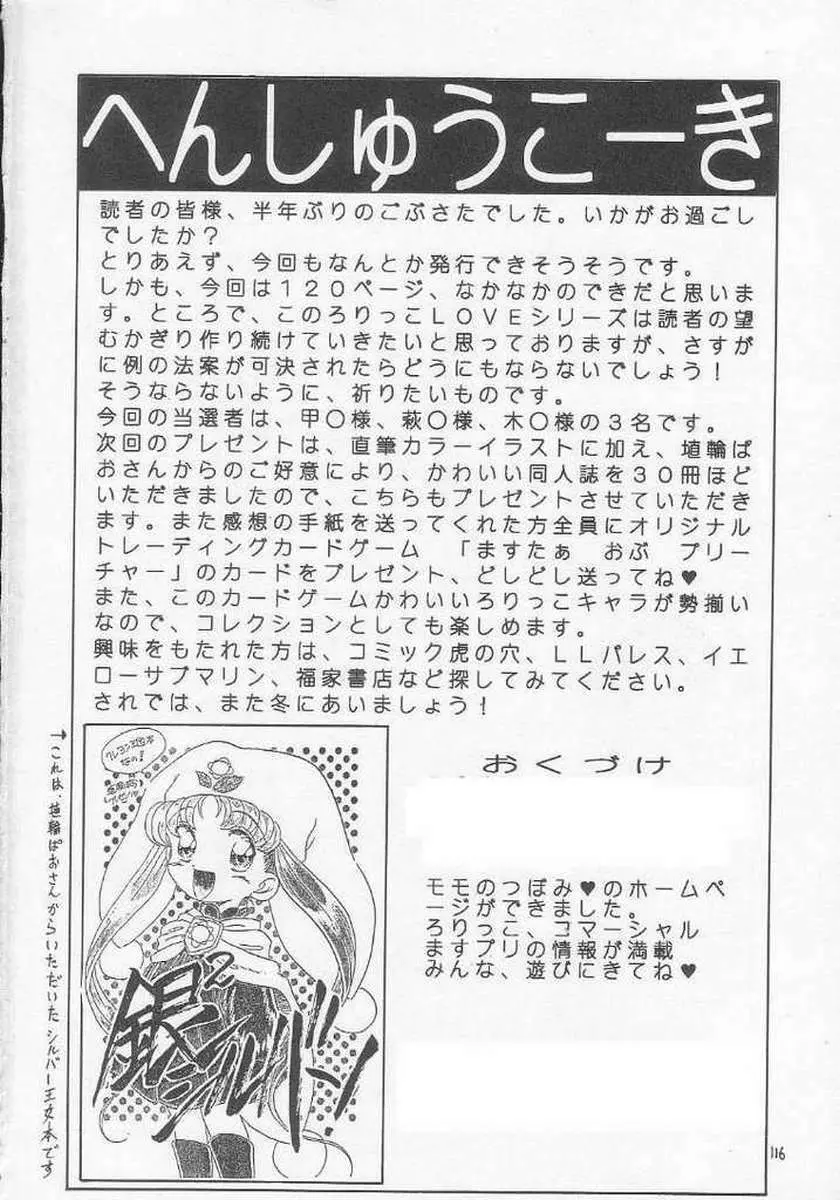 へんしゅうこーき
読者の皆様、半年ぶりのごぶさたでした。いかがお過ごし
でしたか？
とりあえず、今回もなんとか発行できそうそうです。
しかも、今回は１２０ページ、なかなかのできだと思いま
す。ところで、このろりっこＬＯＶＥシリーズは読者の望
むかぎり作り続けていきたいと思っておりますが、さすが
に例の法案が可決されたらどうにもならないでしょう！
そうならないように、祈りたいものです。
今回の当選者は、甲〇様、萩〇様、木〇様の３名です。
次回のプレゼントは、直筆カラーイラストに加え、埴輪ぱ
おさんからのご好意により、かわいい同人誌を３０冊ほど
いただきましたので、こちらもプレゼントさせていただき
ます。また感想の手紙を送ってくれた方全員にオリジナル
トレーディングカードゲーム　「ますたぁ　おぶ　プリー
チャー」のカードをプレゼント、どしどし送ってね♥
また、このカードゲームかわいいろりっこキャラが勢揃い
なので、コレクションとしても楽しめます。
興味をもたれた方は、コミック虎の穴、ＬＬパレス、イエ
ローサブマリン、福家書店など探してみてください。
されでは、また冬にあいましょう！
→これは、埴輪ぱおさんからいただいたシルバー王女本です
銀²
シルバー
おくづけ
モモのつぼみ♥のホームペ
ージができました。
ろりっこ、コマーシャル
ますプリの情報が満載
みんな、遊びにきてね♥
116